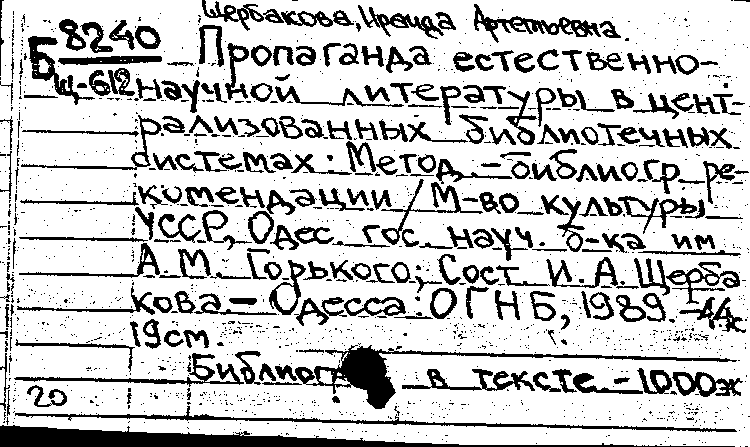 Щербакова, Ираида Артемьевна.
Б 8240
Щ-612
Пропаганда естественно-
научной литературы в цент-
рализованных библиотечных
системах: Метод.-библиогр. ре-
комендации / М-во культуры
УССР, Одес. гос. науч. б-ка им.
А. М. Горького; Сост. И. А. Щерба
кова. – Одесса: ОГНБ, 1989. – 44с
19см.
Библиогр. в тексте – 1000эк
20